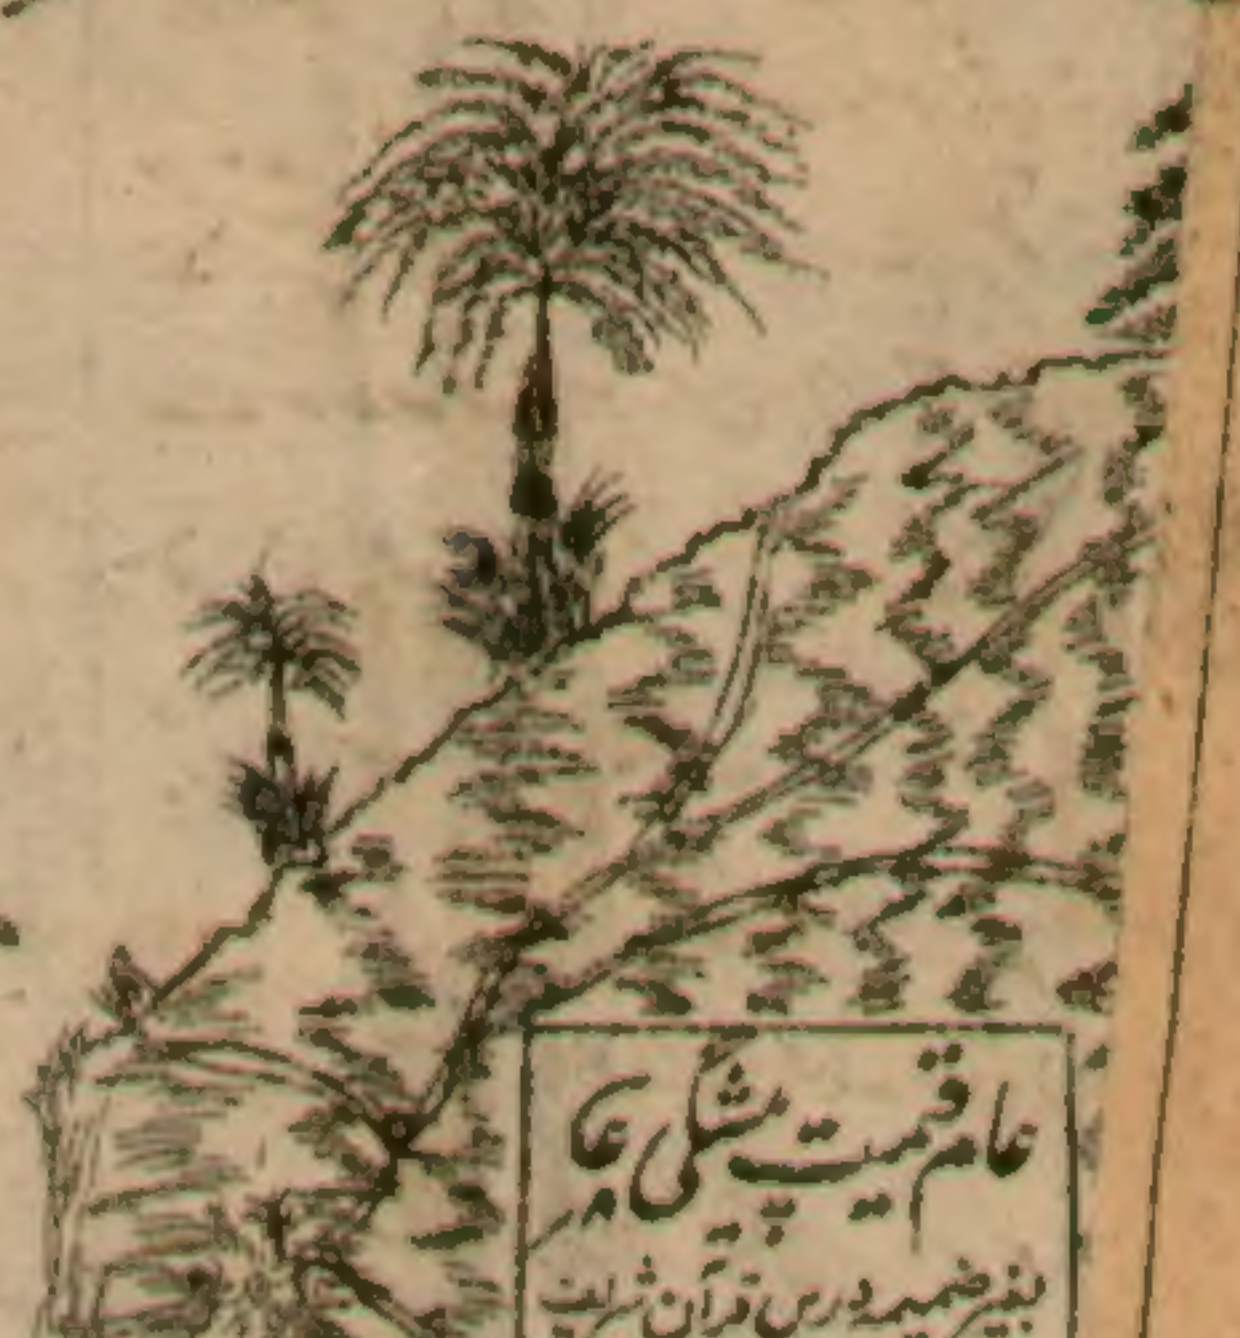 عام قیمت پیشگی چار
بغیر ضمیمہ درس قرآن شریف